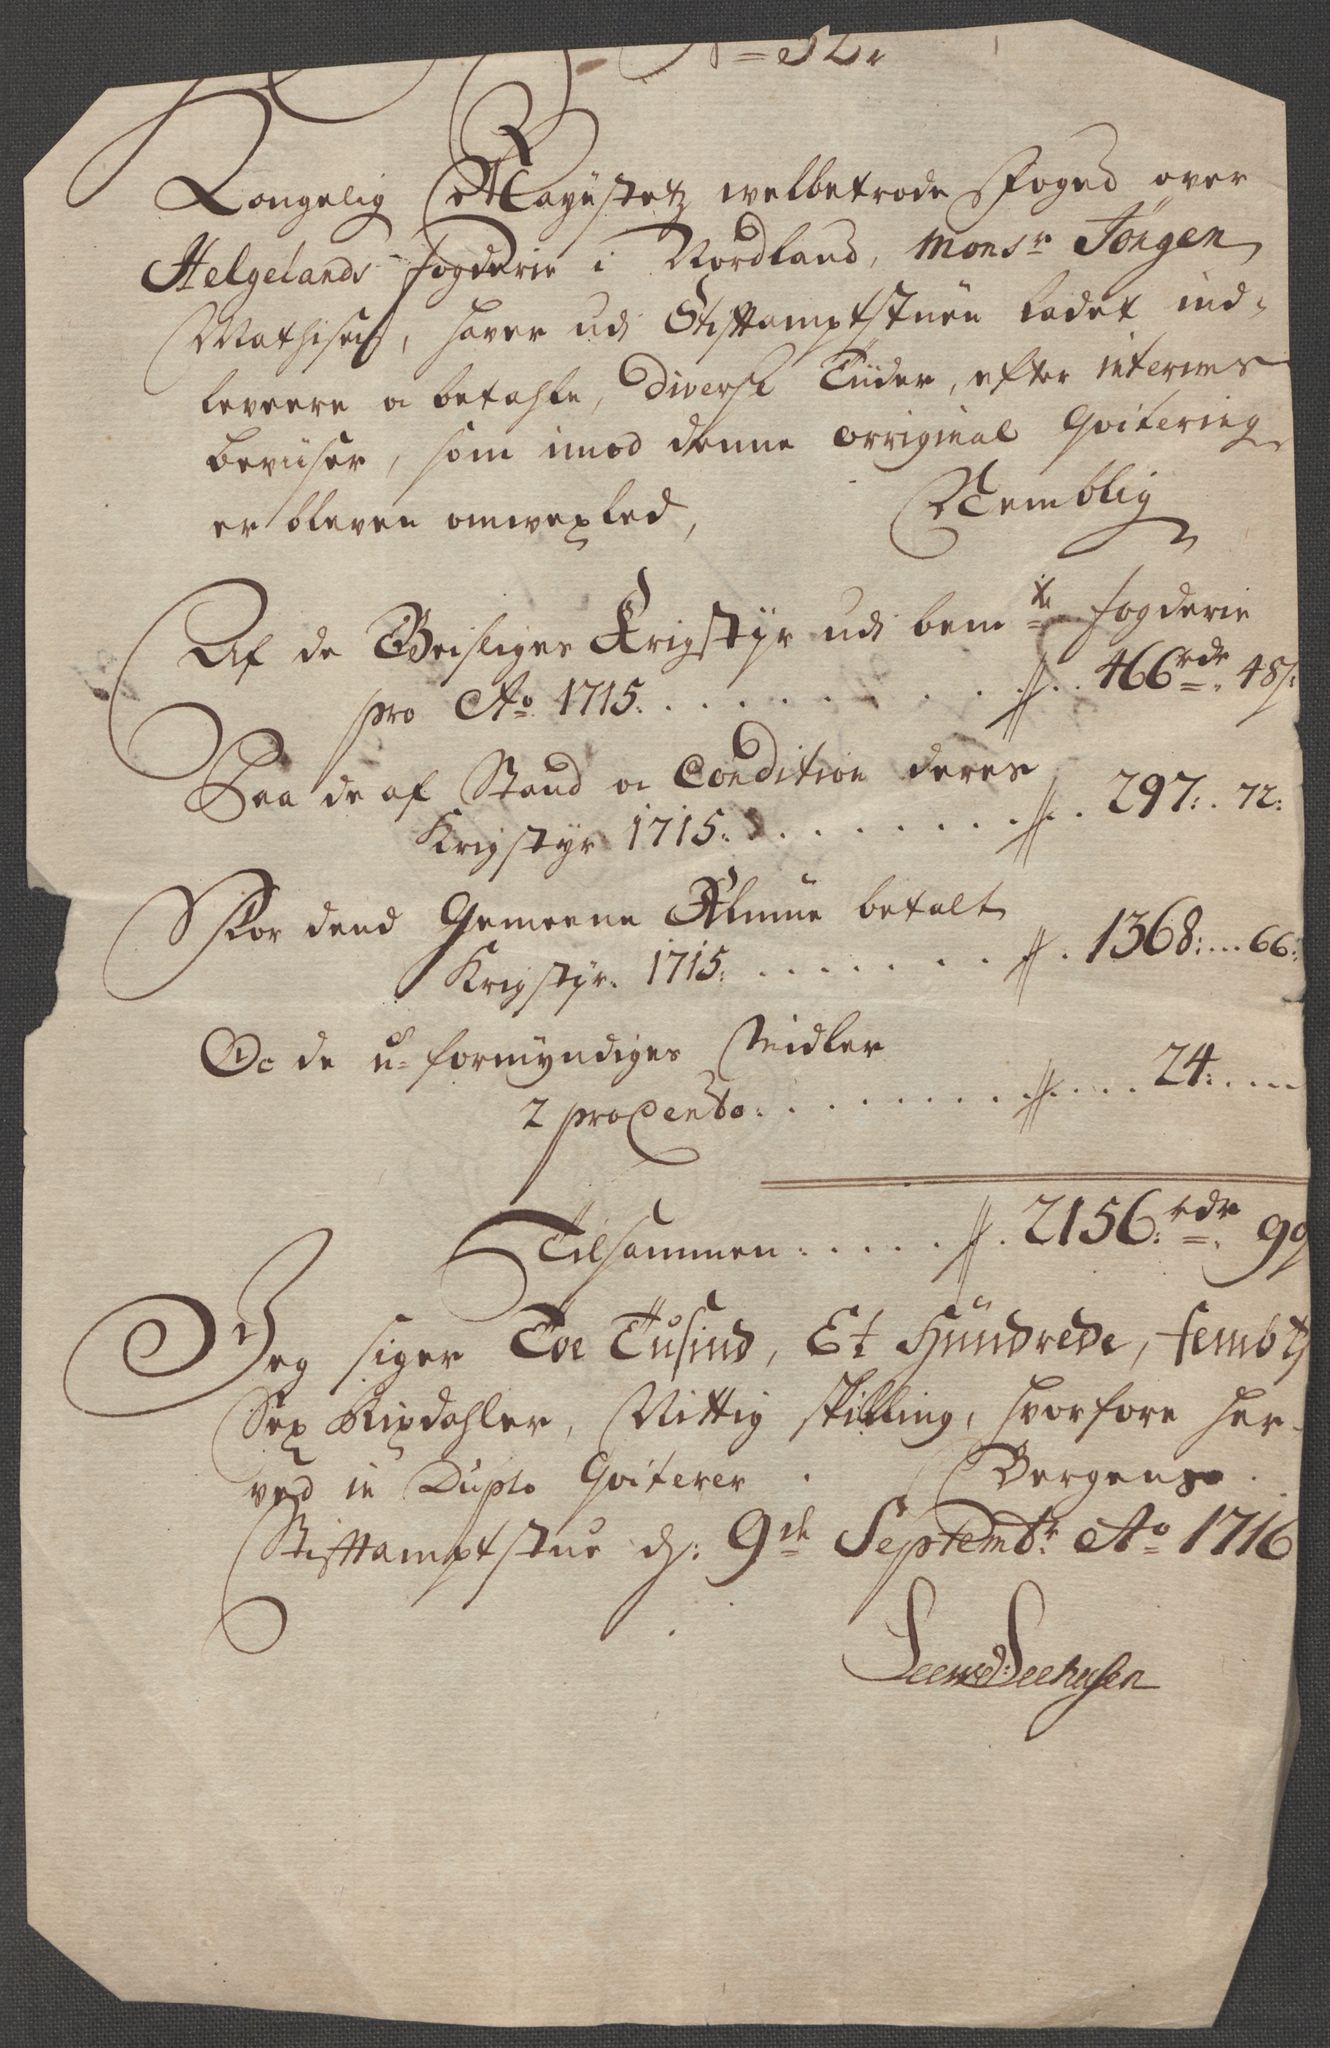 N= 32.
Kongelig Mayestetz welbetrode Foged over
Helgelands fogderie i Nordland, Monsr Jörgen
Mathisen, haver udi Stiftamptstuen ladet ind-
levere og betahle, diverse Tiider, efter interims
beviiser, som imod denne orriginal Qvitering
er bleven omvexled, Nemblig
Af de Geistliges Krigstyr udi bemte fogderie
pro Ao 1715. . . . . . . . . . 466 rdr 48 s:
Saa de af Stand og Condition deres
Krigstyr 1715: . . . . . . . . 297: . 72:
For dend Gemeene Almue betalt
Krigstyr. 1715: . . . . . . . . 1368: ... 66:
Oc de u-formyndiges Midler
2 proCento: . . . . . . . . . . 24: . . .
Tilsammen: . . . . . . 2156: rdr 90
Jeg siger Toe Tusind, Et Hundrede, femb
Sex Rixdahler, Nittig skilling, hvorfore her-
ved in Duplo Qviterer. Bergens
Stiftamptstue d: 9de Septembr Ao 1716
Seehusen